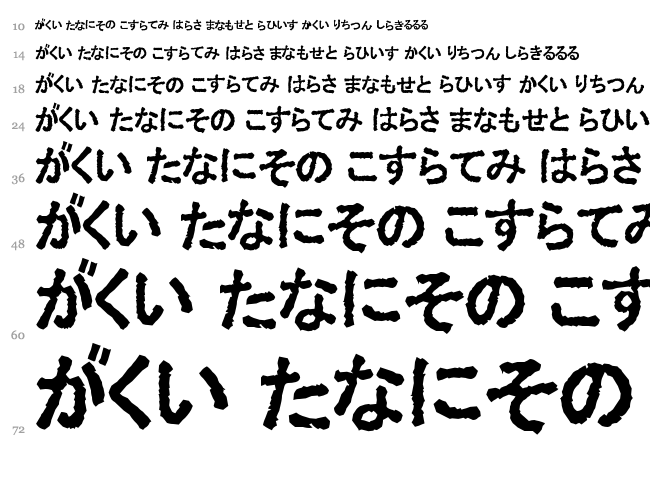 10 がくい たなにその こすらてみ はらさ まなもせと らひいす かくい りちつん しらきるるる
14 がくい たなにその こすらてみ はらさ まなもせと らひいす かくい りちつん しらきるるる
18 がくい たなにその こすらてみ はらさ まなもせと らひいす かくい りちつん
24 がくい たなにその こすらてみ はらさ まなもせと らひい
36 がくい たなにその こすらてみ はらさ
48 がくい たなにその こすらてみ
60 がくい たなにその こす
72 がくい たなにその